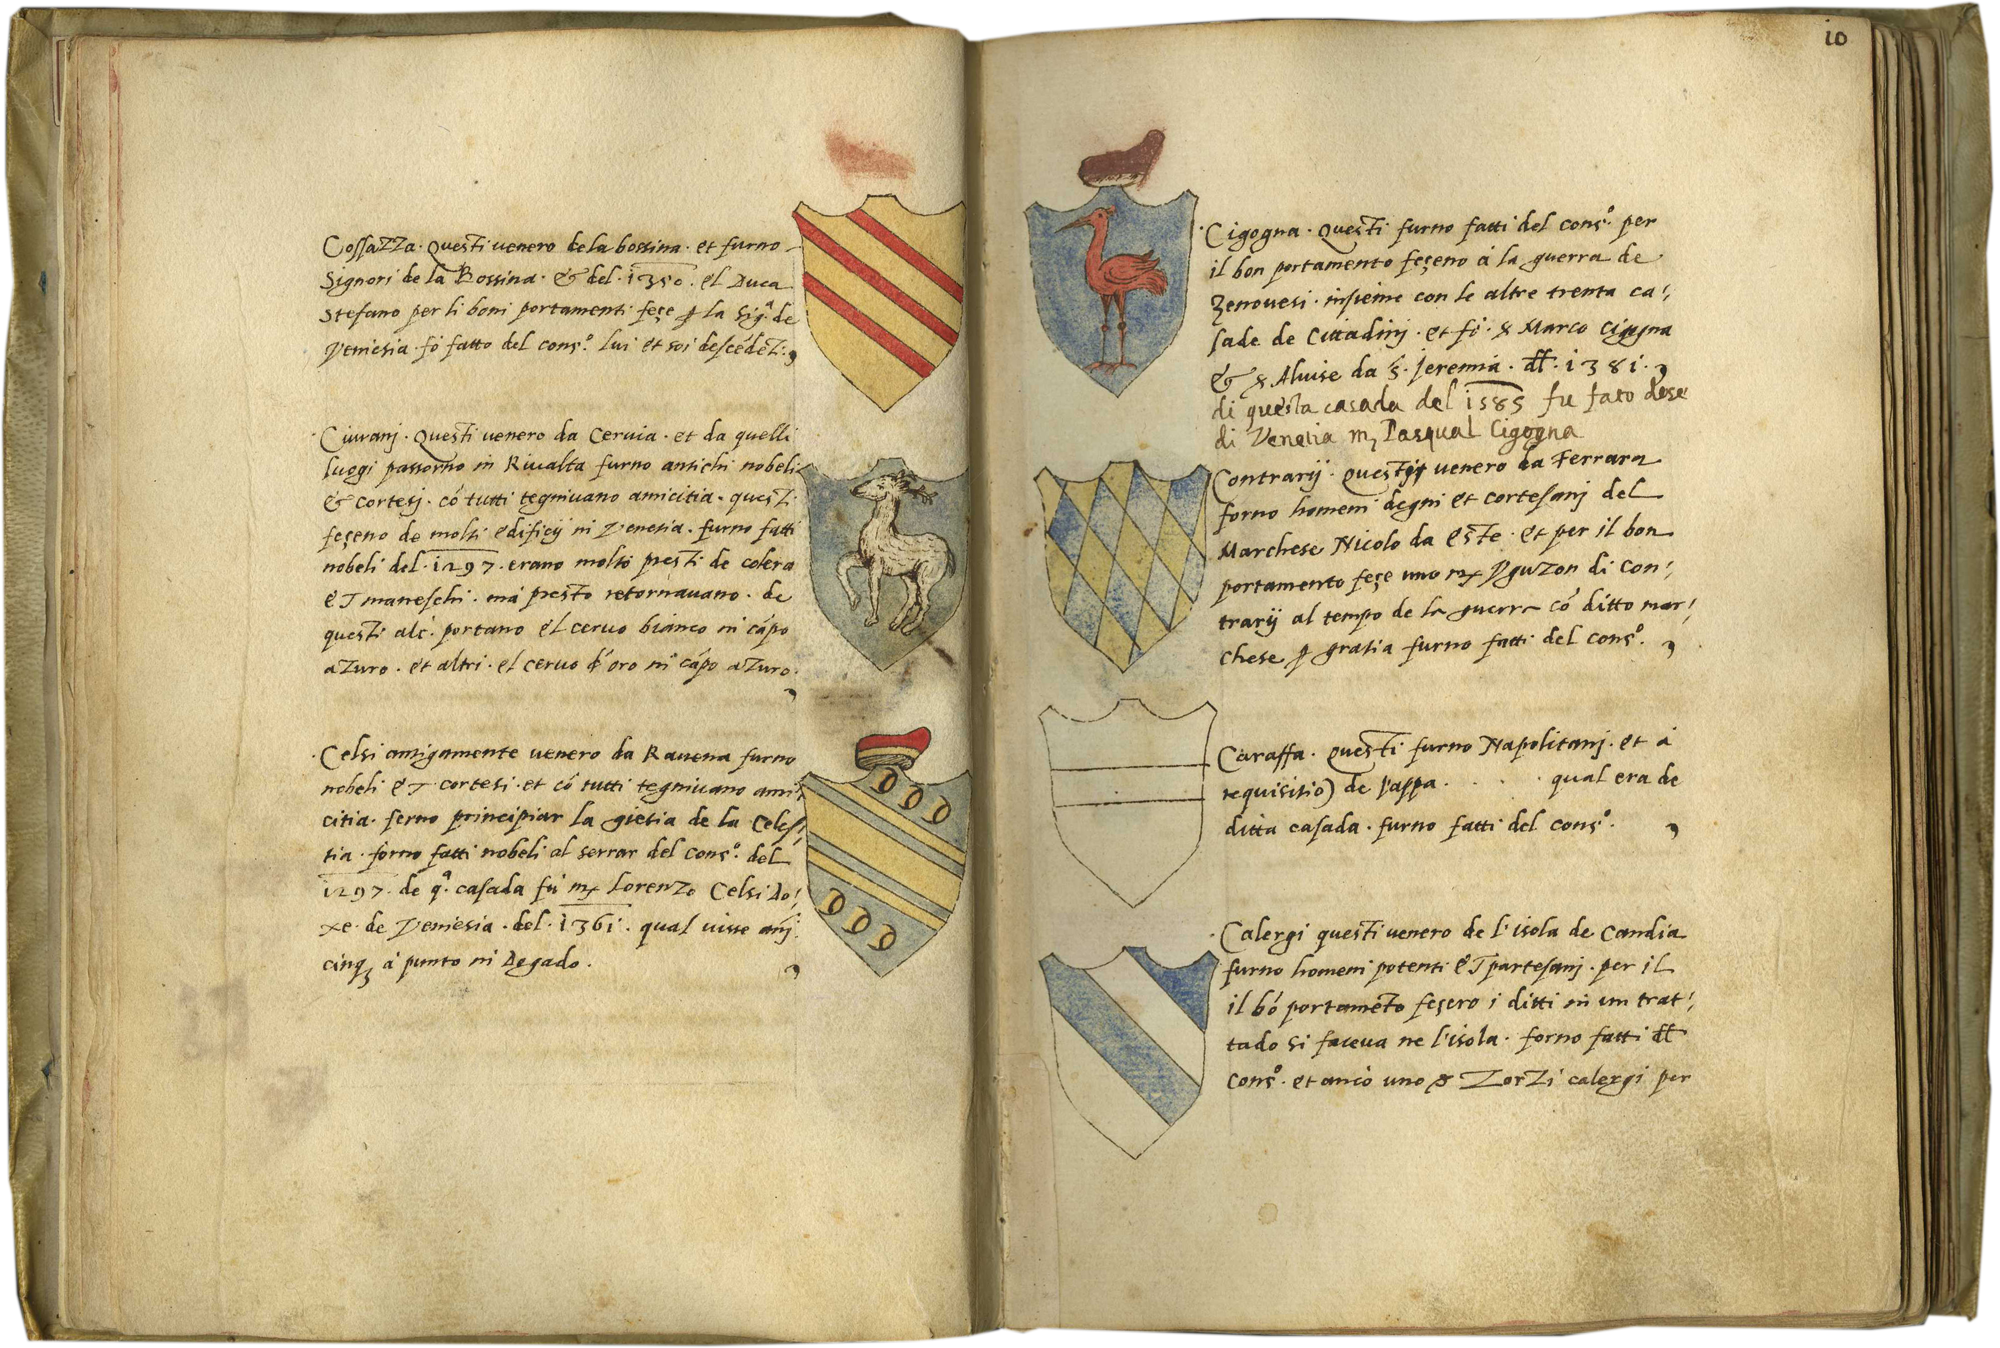 Cossazza · Questi venero de la bossina · et furno
Signori de la Bossina · & del · 1350 · el Duca
Stefano per li boni portamenti feçe ꝑ la Sig.ª de
Veniesia · fo fatto del cons.º lui et soi descédéti ·
Ciurani · Questi venero da Ceruia · et da quelli
luogi passorno in Riualta furno antichi nobeli
& cortesi · có tutti tegniuano amicitia · questi
feçeno de molti edificij in Venetia · furno fatti
nobeli del · 1297 · erano molto presti de colera
et maneschi · má presto retornauano · de
questi alc̃ · portano el ceruo bianco in cápo
azuro · et altri · el ceruo d'oro in cápo azuro ·
Celsi antigamente venero da Rauena furno
nobeli et cortesi · et có tutti tegniuano ami¦
citia · ferno principiar la giesia de la Celes¦
tia · forno fatti nobeli al serrar del cons.º del
1297 · de q.ª casada fú mᷤ Lorenzo Celsi Do¦
xe de Veniesia · del · 1361 · qual uisse anj̃
cinqȝ á punto in Degado ·
10
Cigogna · Questi furno fatti del cons.º per
il bon portamento feçeno á la guerra de
Zenouesi · insieme con le altre trenta ca¦
sade de Cittadinj · et fó · & Marco Cigogna
& & Aluise da S · Jeremia · dꝉꝉ · 1381 ·
di questa casada del 1585 fu fato dose
di Venetia mȝ Pasqual Cigogna
Contrarij · Questij venero da Ferrara
forno homeni degni et cortesanj del
Marchese Nicolo da Este · et per il bon
portamento feçe uno mᷤ Vguzon di Con¦
trarij al tempo de la guerra có ditto mar¦
chese ꝑ gratia furno fatti del cons.º
Caraffa · Questi furno Napolitanj · et á
requisitiõ de Pappa · · · · qual era de
ditta casada · furno fatti del cons.º
Calergi questi venero de l'isola de Candia
furno homeni potenti et partesanj · per il
il bó portaméto feçero i ditti in un trat¦
tado si faceua ne l'isola · forno fatti dꝉꝉ
cons.º · et ancó uno & Zorzi calergi per